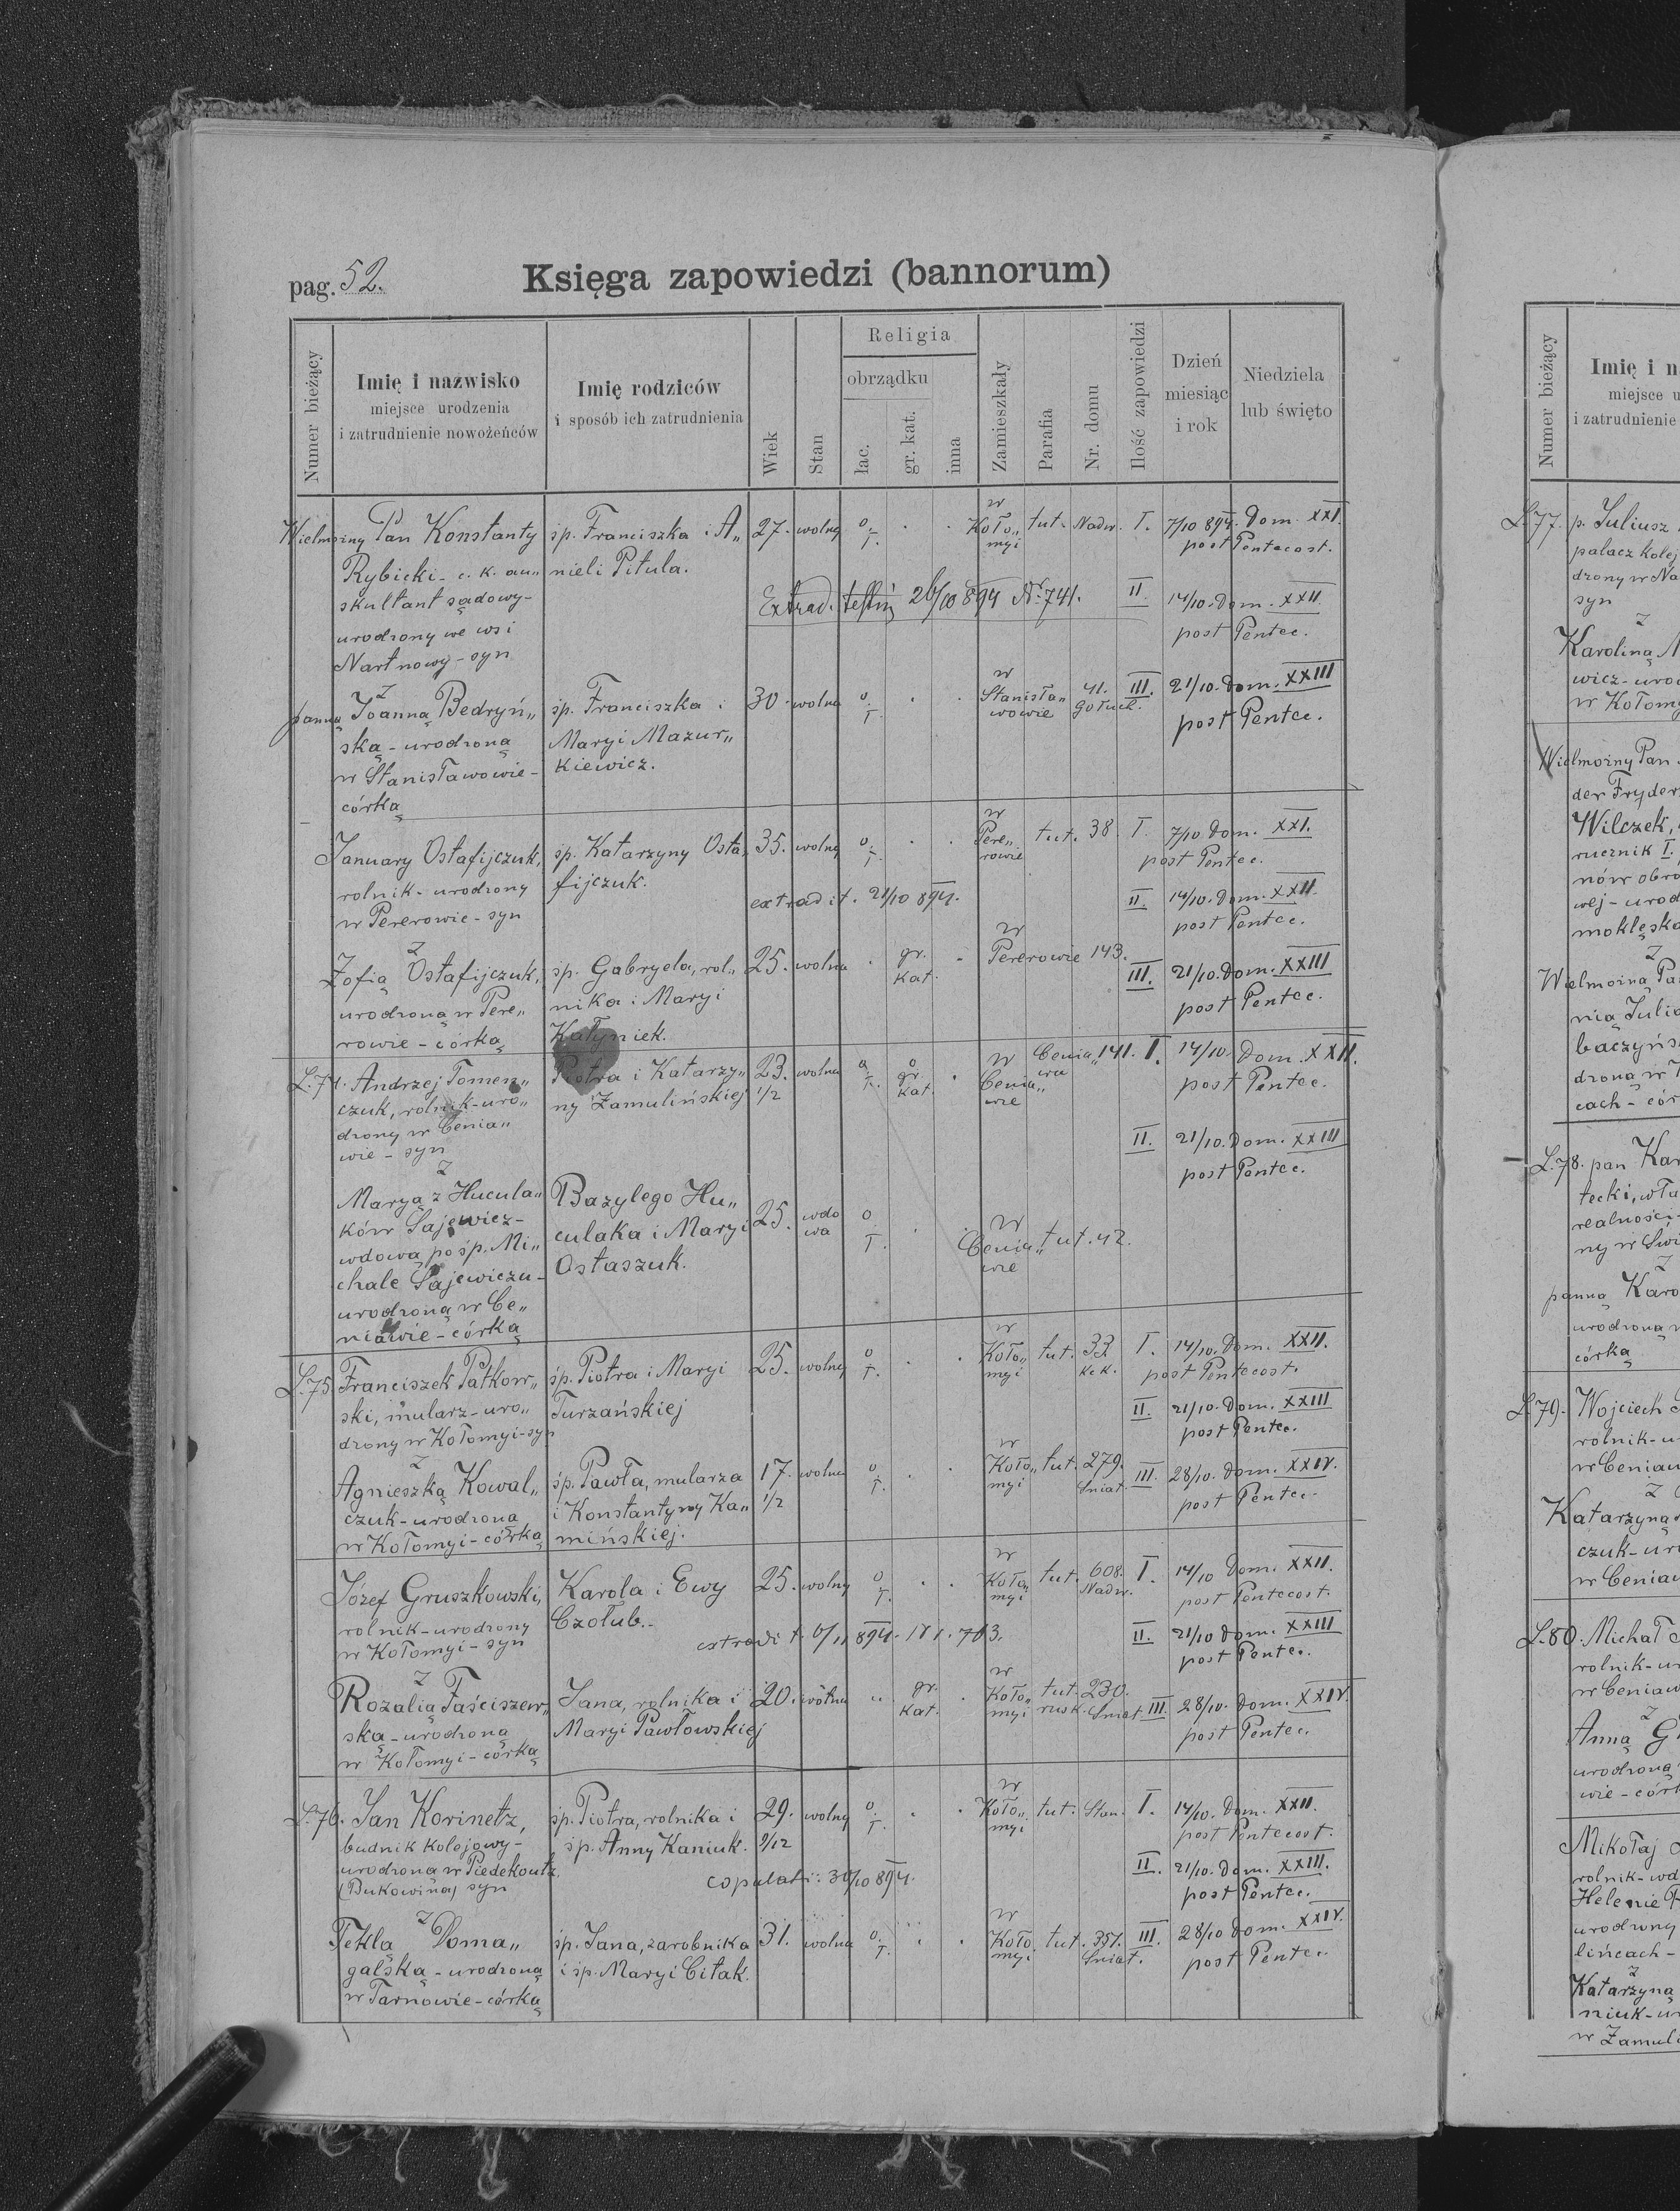 pag. 52. Księga zapowiedzi (bannorum)
Numer bieżący
Imię i nazwisko
miejsce urodzenia
i zatrudnienie nowożeńców
Imię rodziców
i sposób ich zatrudnienia
Wiek
Stan
Religia
obrządku
łac.
gr. kat.
inna
Zamieszkały
Parafia
Nr. domu
Ilość zapowiedzi
Dzień
miesiąc
i rok
Niedziela
lub święto
Wielmożny Pan Konstanty
Rybicki - c. k. au„
skultant sądowy -
urodzony we wsi
Nartnowy - syn
śp. Franciszka i A„
nieli Pitula.
27. wolny o. T. w Koło„ myi tut. Nadw. I. 7/10 894. Dom. XXI.
post Pentecost.
Extrad. 26/10 894 Nr. 741. II 14/10. Dom. XXII.
post Pentec.
z
panną Joanną Bedryń„
ską - urodzoną
w Stanisławowie -
córką
śp. Franciszka i
Maryi Mazur„
kiewicz.
30. wolna o. T. w Stanisła„ wowie 41. III. 21/10. Dom. XXIII
post Pentec.
January Ostafijczuk,
rolnik - urodzony
w Pererowie - syn
śp. Katarzyny Osta„
fijczuk.
35. wolny o. T. w Pere„ rowie tut. 38. I. 7/10 Dom. XXI.
post Pentec.
extradit. 21/10 894. II. 14/10. Dom. XXII.
post Pentec.
z
Zofią Ostafijczuk,
urodzoną w Pere„
rowie - córką
śp. Gabryela, rol„
nika i Maryi
Kałyniek.
25. wolna gr. kat. w Pererowie 143. III. 21/10. Dom. XXIII
post Pentec.
L. 74. Andrzej Tomen„
czuk, rolnik - uro„
dzony w Cenia„
wie - syn
Piotra i Katarzy„
ny Zamulińskiej
23. 1/2 wolna T. gr. kat. w Cenia„ wie Cenia„ wa 141. I. 14/10. Dom. XXII.
post Pentec.
II. 21/10. Dom. XXIII
post Pentec.
z
Maryą z Hucula„
ków Sajewicz -
wdową po śp. Mi„
chale Sajewiczu -
urodzoną w Ce„
niawie - córką
Bazylego Hu„
culaka i Maryi
Ostaszuk.
25. wdo wa o T. w Cenia„ wie tut. 42.
L. 75. Franciszek Patkow„
ski, mularz - uro„
dzony w Kołomyi - syn
śp. Piotra i Maryi
Turzańskiej
25. wolny o T. w Koło„ myi tut. 33 I. 14/10. Dom. XXII.
post Pentecost.
II. 21/10. Dom. XXIII
post Pentec.
z
Agnieszką Kowal„
czuk - urodzona
w Kołomyi - córką
śp. Pawła, mularza
i Konstantyny Ka„
mińskiej.
17. 1/2 wolna o T. w Koło„ myi tut. 279. Śniat. III. 28/10. Dom. XXIV.
post Pentec.
Józef Gruszkowski,
rolnik - urodzony
w Kołomyi - syn
Karola i Ewy
Czołub.
25. wolny o T. w Koło„ myi tut. 608. Nadw. I. 14/10 Dom. XXII.
post Pentecost.
6/11 894. II. 21/10 Dom. XXIII
post Pentec.
z
Rozalią Faściszew„
ską - urodzoną
w Kołomyi - córką
Jana, rolnika i
Maryi Pawłowskiej
20. wolna gr. kat. w Koło„ myi tut. rusk. 230. Śniat III. 28/10. Dom. XXIV.
post Pentec.
L. 76. Jan Korinetz,
budnik kolejowy -
urodzona w Piedekoutz
(Bukowina) syn
śp. Piotra, rolnika i
śp. Anny Kaniuk.
29. wolny o. T. w Koło„ myi tut. Stan. I. 14/10. Dom. XXII.
post Pentecost.
copulati: 30/10 894. II. 21/10. Dom. XXIII.
post Pentec.
z
Teklą Doma„
galską - urodzoną
w Tarnowie - córką
śp. Jana, zarobnika
i śp. Maryi Citak.
31. wolna o. T. w Koło myi tut. 351. Śniat. III. 28/10 Dom. XXIV.
post Pent..
Numer bieżący
Imię i n
miejsce u
i zatrudnienie
L. 77. p. Juliusz
palacz kolej
dzony w Na
syn
z
Karoliną
wicz - uro
w Kołomy
Wielmożny Pan
der Fryder
Wilczek,
rucznik I.
nów obro
wej - urod
z
Wielmożną Pa
nią Julia
baczyńs
dzoną w
cach - cór
L. 78. pan Kar
tecki, wła
realności
ny w Świ
z
panną Karo
urodzoną
córką
L. 79. Wojciech
rolnik - u
w Ceniaw
z
Katarzyną
czuk - ur
w Ceniaw
L. 80. Michał
rolnik - u
w Ceniaw
z
Anną G
urodzoną
wie - córk
Mikołaj
rolnik - wd
Helenie
urodzony
lińcach -
z
Katarzyną
niuk - u
w Zamuli